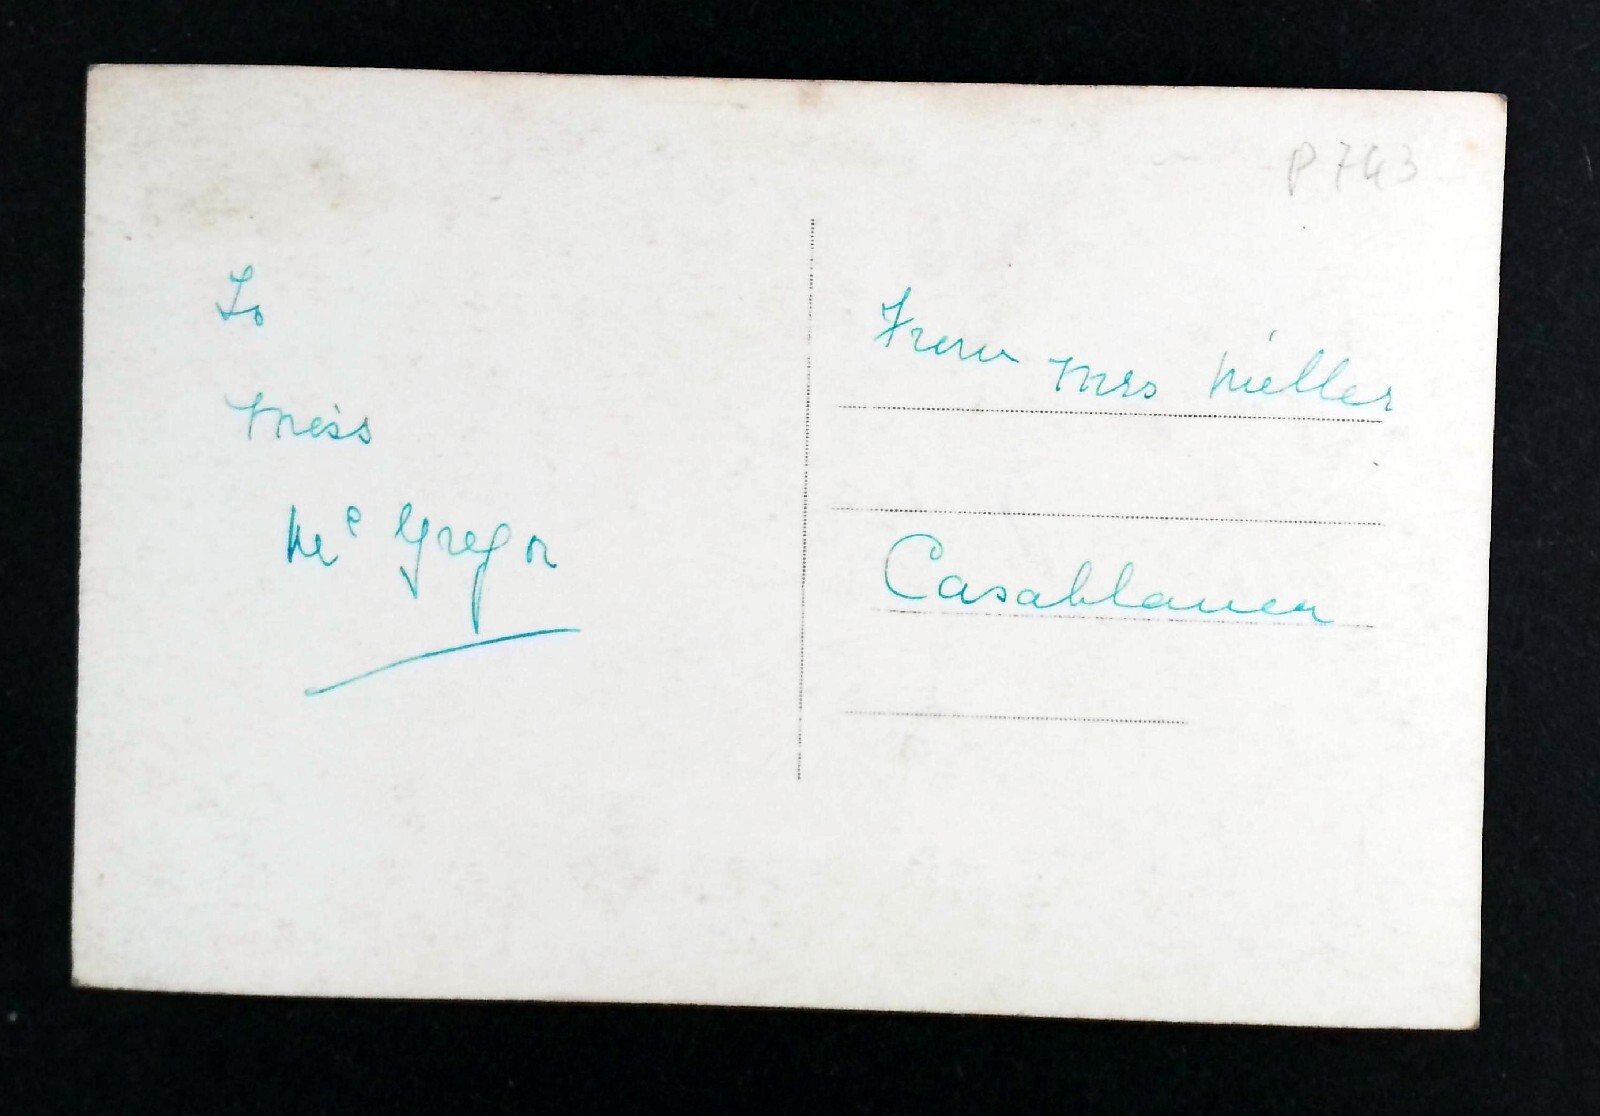 P 743
To
Miss
Mc Gregor
From Mrs Miller
Casablanca